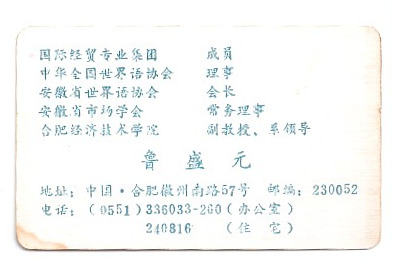 国际经贸专业集团 成员
中华全国世界语协会 理事
安徽省世界语协会 会长
安徽省市场学会 常务理事
合肥经济技术学院 副教授、系领导
鲁盛元
地址：中国·合肥徽州南路57号 邮编：230052
电话：（0551）336033-260（办公室）
240816（住宅）